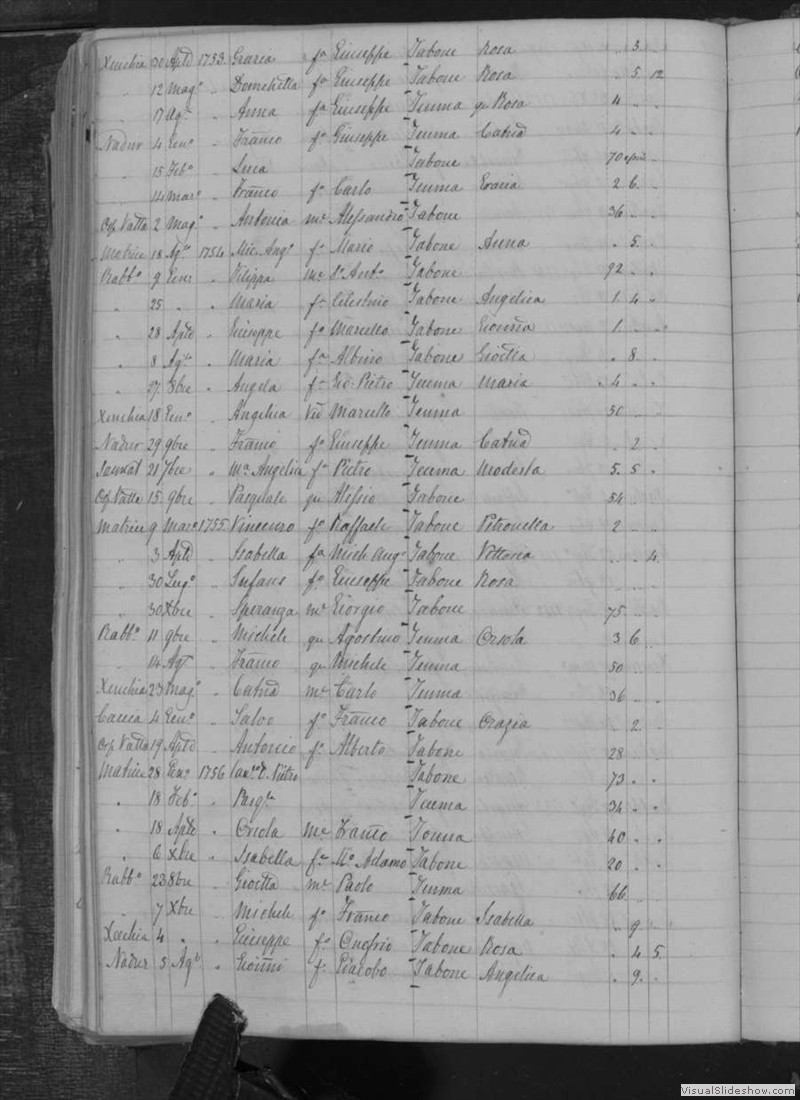 Xeuchia 30 Aple 1753 Grazia fa Giuseppe Tabone Rosa .. 3 ..
.. 12 Mago .. Domchella fa Giuseppe Tabone Rosa .. 5 12
.. 17 Ago .. Anna fa Giuseppe Teuma qu Rosa 4 .. ..
Nadur 4 Geno .. Franco fo Giuseppe Teuma Catna 4 .. ..
.. 15 Febo .. Luca Tabone 70
.. 14 Maro .. Franco fo Carlo Teuma Grazia 2 6 ..
Osp Vatta 2 Mago .. Antonia me Alessandro Tabone 36 .. ..
Matrice 18 Ago 1754 Mic Ango fo Mario Tabone Anna .. 5 ..
Rabbo 9 Geno .. Filippa me Anto Tabone 92 .. ..
.. 25 .. .. Maria fa Celestino Tabone Angelica 1 4 ..
.. 28 Aple .. Giuseppe fo Marcello Tabone Gionna 1 .. ..
.. 8 Ago .. Maria fa Albino Tabone Gioetta .. 8 ..
.. 27 8bre .. Angela fa Gio Pietro Teuma Maria .. 4 .. ..
Xeuchia 18 Geno .. Angelica Va Marcello Teuma 50 .. ..
Nadur 29 9bre .. Franco fo Giuseppe Teuma Catna .. 2 ..
Sannat 21 7bre .. Ma Angelica fa Pietro Teuma Modesta 5 5 ..
Osp Vatta 15 9bre .. Pasquale qu Alessio Tabone 54 .. ..
Matrice 9 Maro 1755 Vincenzo fo Raffaele Tabone Petronella 2 .. ..
.. 3 Aple .. Isabella fa Mich Ango Tabone Vittoria .. .. 4
.. 30 Lugo .. Infans fo Giuseppe Tabone Rosa .. .. ..
.. 30 Xbre .. Speranza me Giorgio Tabone 75 .. ..
Rabbo 11 9bre .. Michele qu Agostino Teuma Orsola 3 6 ..
.. 14 Ago .. Franco qu Michele Teuma 50 .. ..
Xeuchia 23 Mago .. Catna me Carlo Teuma 36 .. ..
Caccia 4 Geno .. Salvo fo Franco Tabone Grazia .. 2 ..
Osp Vatta 19 Aple .. Antonio fo Alberto Tabone 28 .. ..
Matrice 28 Geno 1756 Tabone 73 .. ..
.. 18 Febo .. Pasqle Teuma 34 .. ..
.. 18 Aple .. Orsola me Franco Teuma 40 .. ..
.. 6 Xbre .. Isabella fa Mo Adamo Tabone 20 .. ..
Rabbo 23 8bre .. Gioetta me Paolo Teuma 66 .. ..
.. 7 Xbre .. Michele fo Franco Tabone Isabella .. 9 ..
Xeuchia 4 .. .. Giuseppe fo Onofrio Tabone Rosa .. 4 5
Nadur 5 Ago .. Gionni fo Giacobo Tabone Angelica .. 9 ..
VisualSlideshow.com